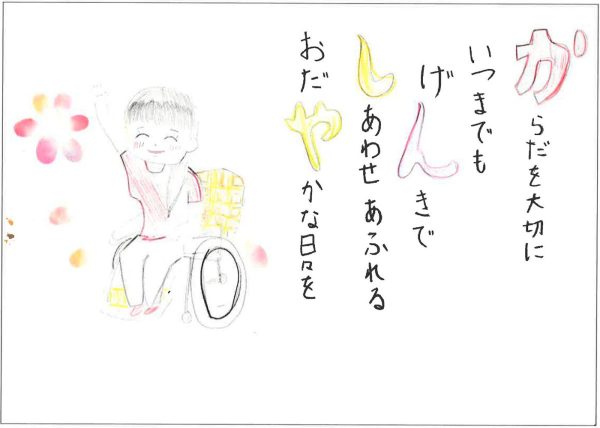 からだを大切に
いつまでも
げんきで
しあわせあふれる
おだやかな日々を